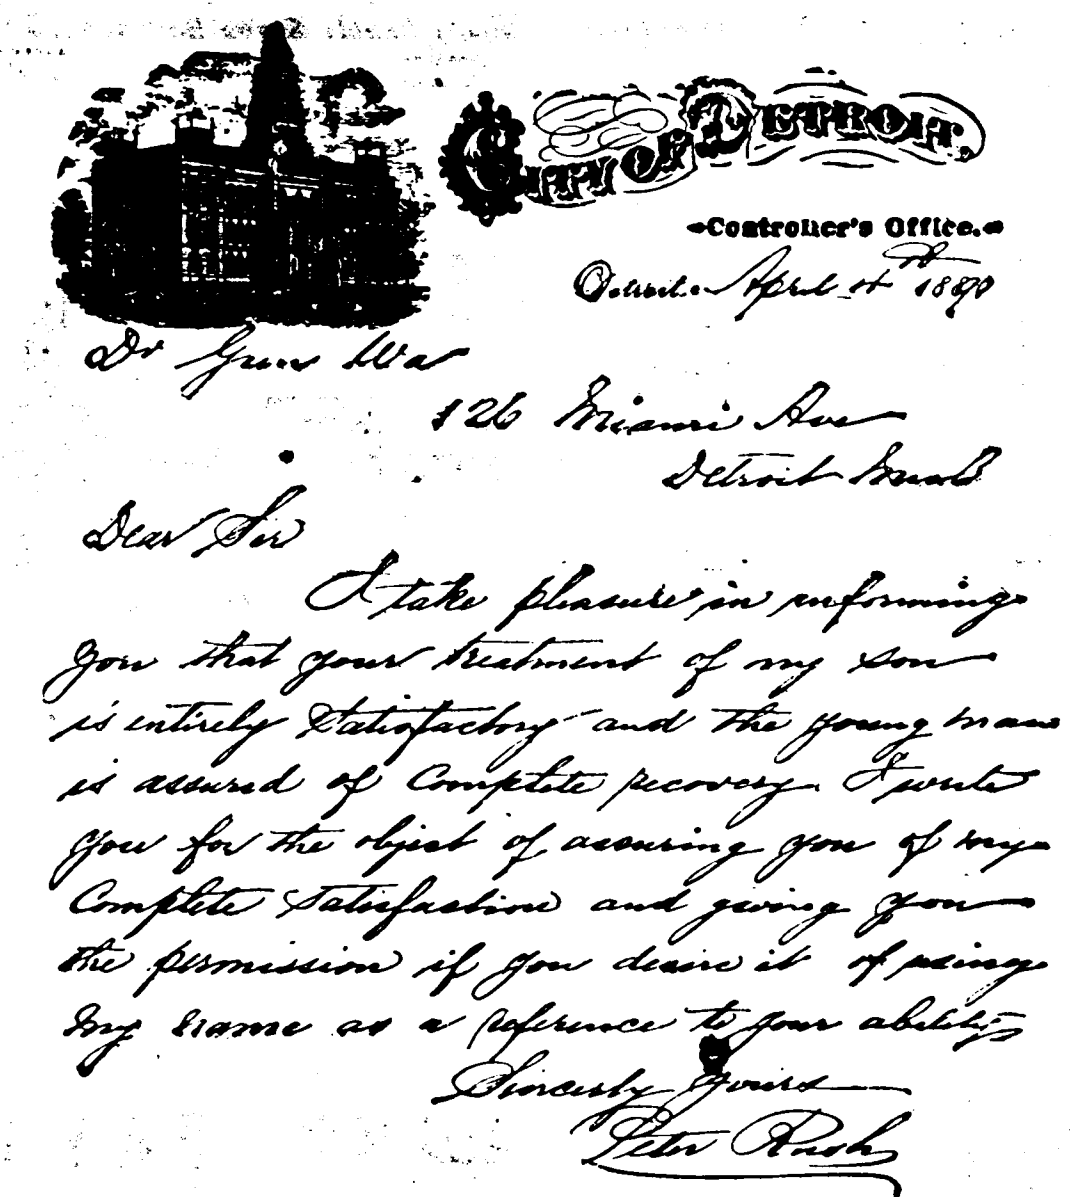 City of Detroit.
Controller's Office.
Detroit April 1st 1890
Dr Gun Wa
126 Miami Ave
Detroit Mich
Dear Sir
I take pleasure in informing
you that your treatment of my son
is entirely Satisfactory and the young man
is assured of Complete recovery. I write
you for the object of assuring you of my
Complete Satisfaction and giving you
the permission if you desire it of using
my name as a reference to your ability
Sincerly yours
Peter Rush